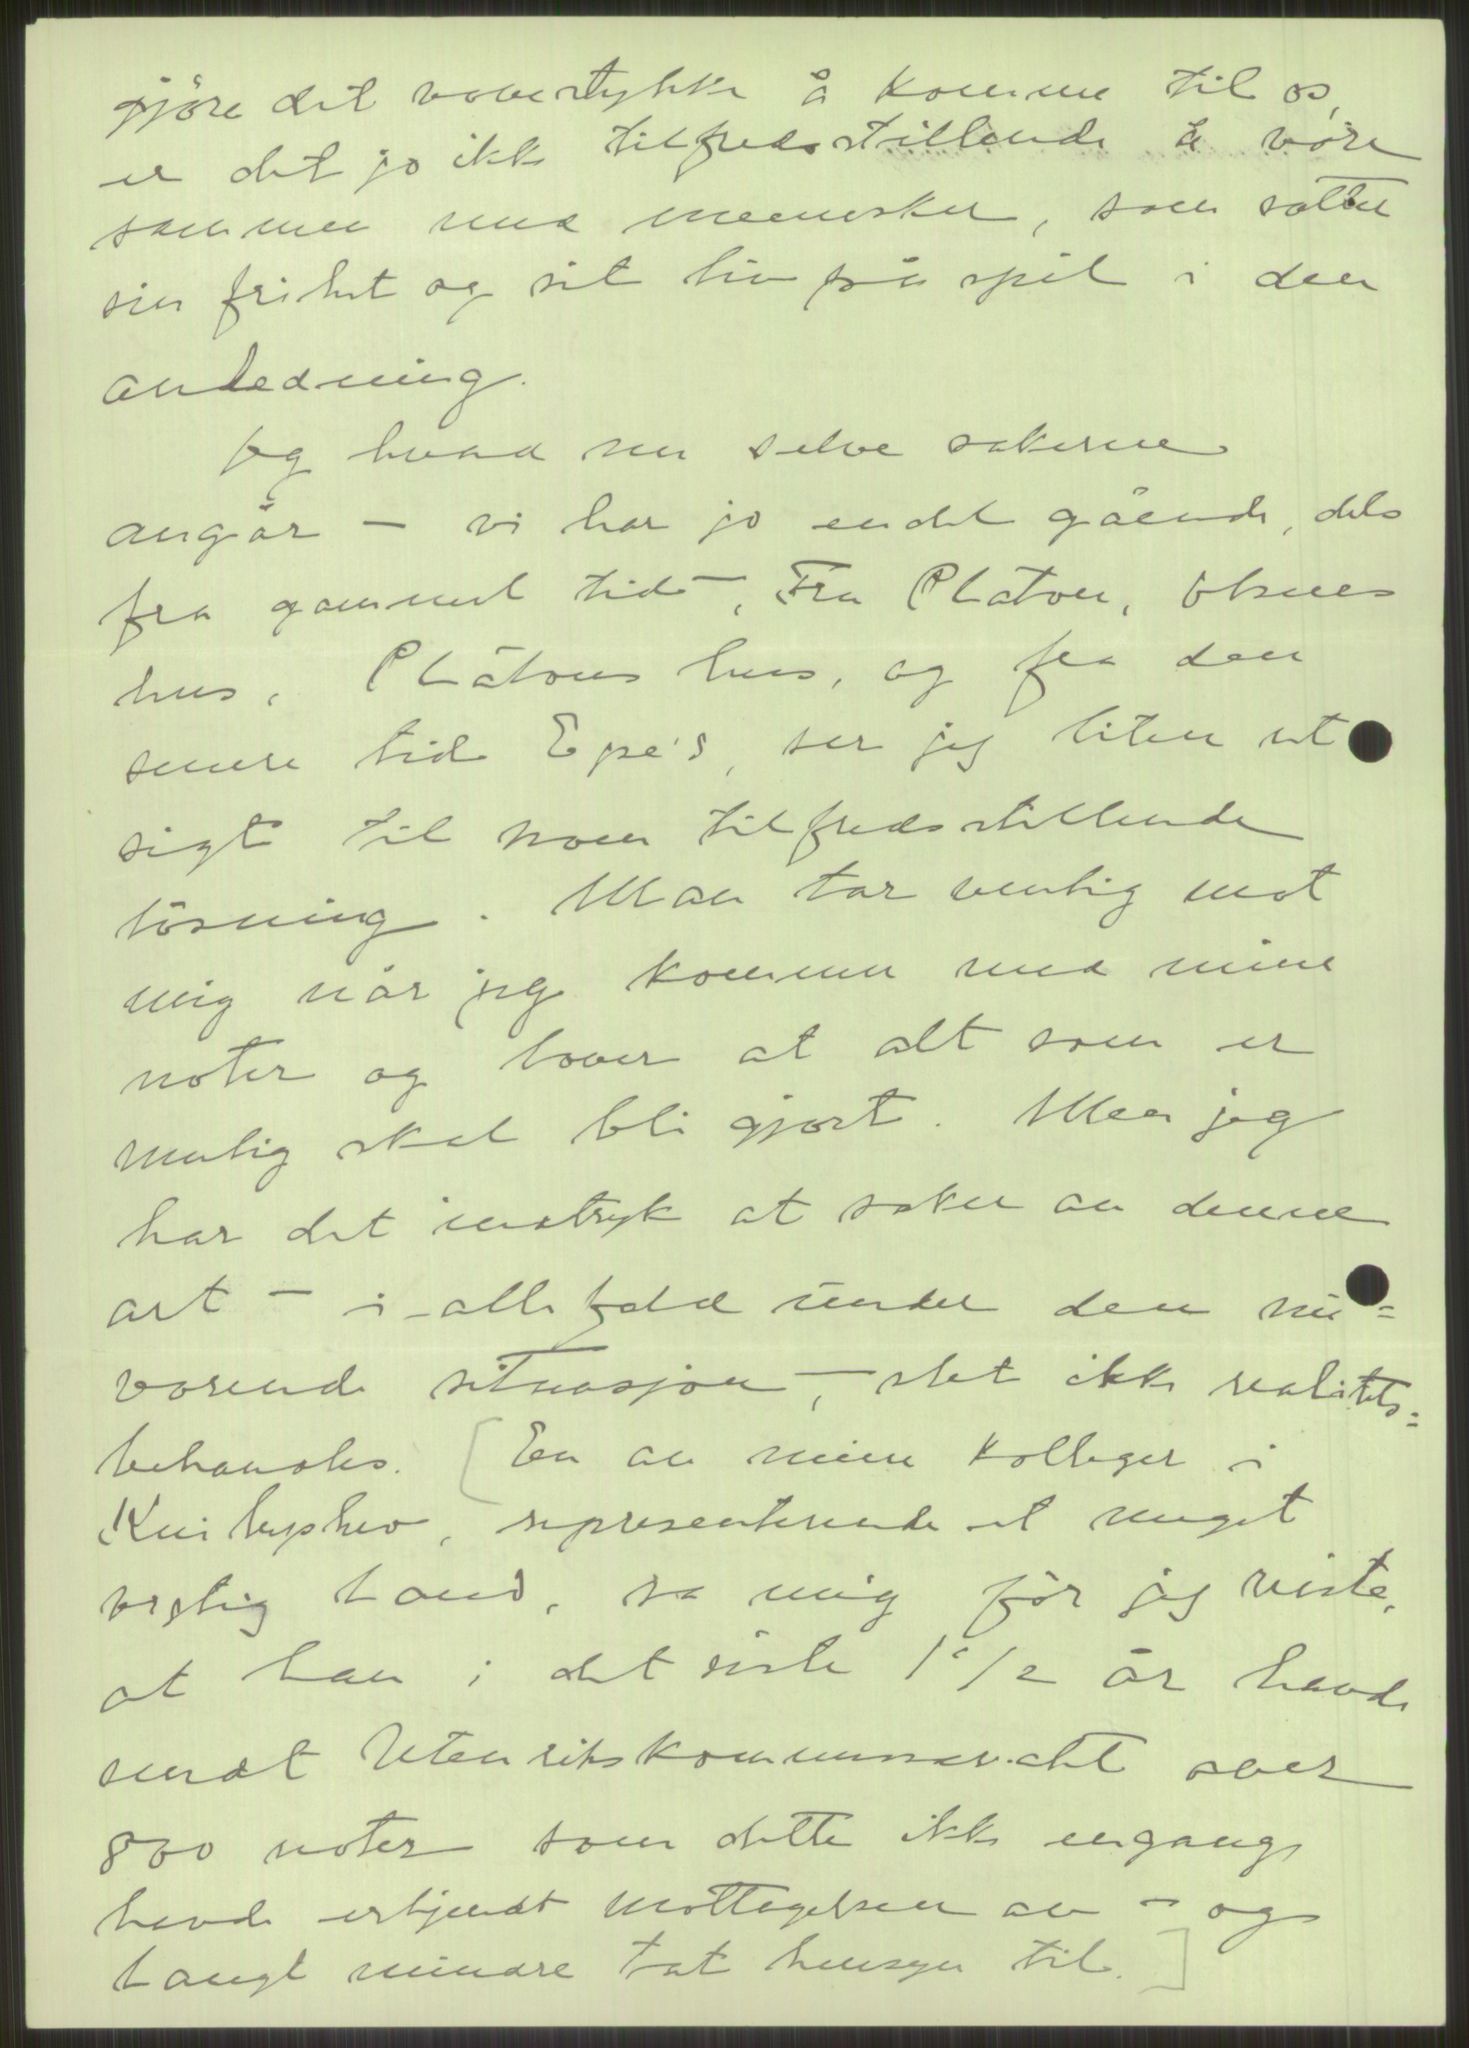 gjöre det vovestykke å komme til os,
er det jo ikke tilfredsstillende å være
sammen med mennesker, som sætter
sin frihet og sit liv på spil i den
anledning.
Jeg hvad nu selve sakerne
angår – vi har jo endel gående, dels
fra gammel tid –, Fru Platou, Olsens
hus, Platous hus, og fra den
senere tid Epe's, ser jeg liten ut
sigt til noen tilfredsstillende
lösning. Man tar venlig mot
mig når jeg kommer med mine
noter og lover at alt som er
mulig skal bli gjort. Men jeg
har det inntryk at saker av denne
art – i allefald under den nu=
værende situasjon –, slet ikke realitets=
behandles. [En av mine kolleger i
Kuibyshev, representerende et meget
vestlig land, sa mig för jeg reiste,
at han i det siste 1 1/2 år havde
sendt Utenrikskommissariatet over
800 noter som dette ikke engang
havde erkjendt mottagelsen av – og
langt mindre tat hensyn til.]